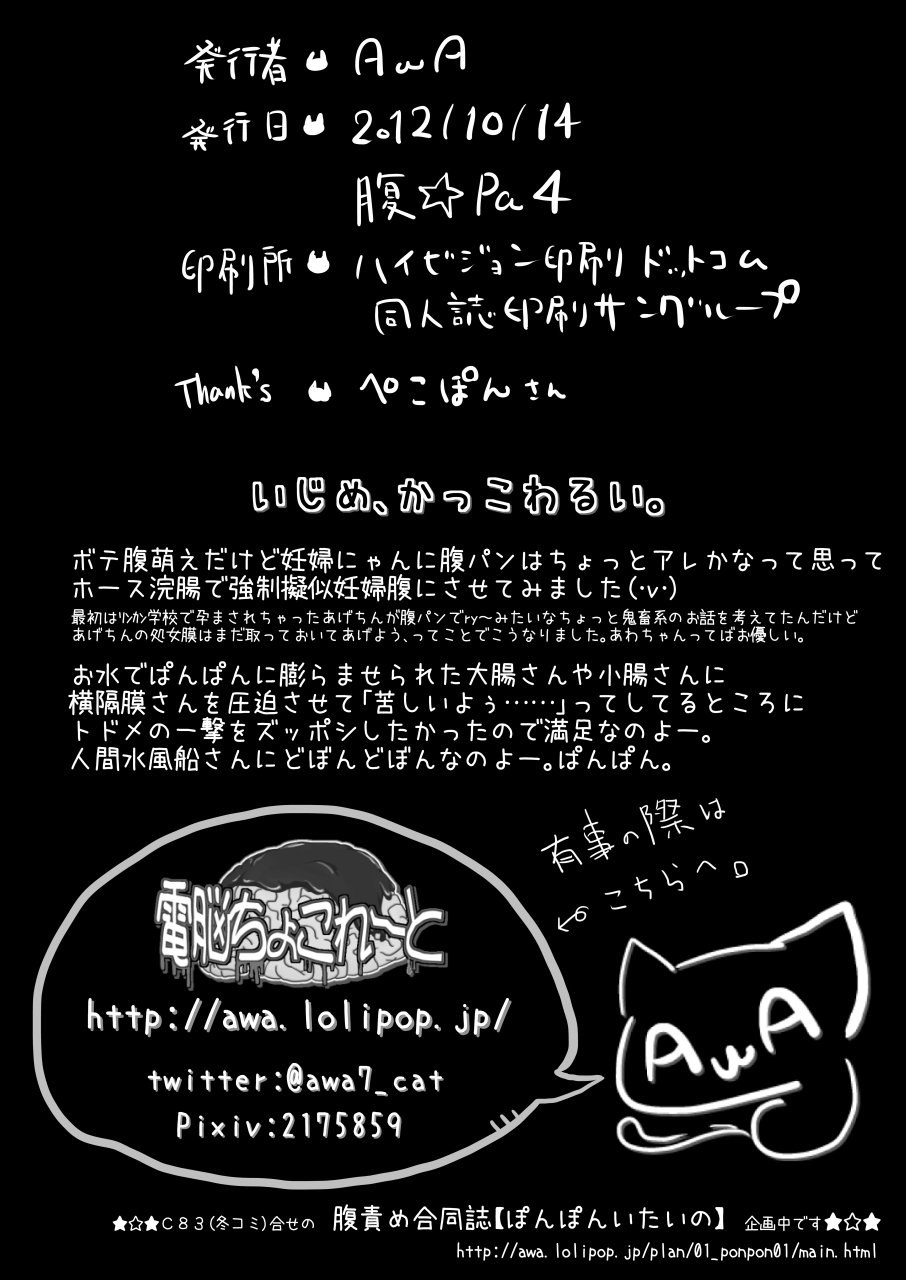 発行者 AwA
発行日 2012/10/14
腹☆Pa4
印刷所 ハイビジョン印刷ドットコム
同人誌印刷サングループ
Thank's ぺこぽんさん
いじめ、かっこわるい。
ボテ腹萌えだけど妊婦にゃんに腹パンはちょっとアレかなって思って
ホース浣腸で強制擬似妊婦腹にさせてみました(・v・)
最初はリンカン学校で孕まされちゃったあげちんが腹パンでry〜みたいなちょっと鬼畜系のお話を考えてたんだけど
あげちんの処女膜はまだ取っておいてあげよう、ってことでこうなりました。あわちゃんってばお優しい。
お水でぱんぱんに膨らませられた大腸さんや小腸さんに
横隔膜さんを圧迫させて「苦しいよぅ……」ってしてるところに
トドメの一撃をズッポシしたかったので満足なのよー。
人間水風船さんにどぼんどぼんなのよー。ぱんぱん。
有事の際は
こちらへ。
電脳ちょこれーと
http://awa.lolipop.jp/
twitter:@awa7_cat
Pixiv:2175859
AwA
★☆★C83(冬コミ)合せの 腹責め合同誌【ぽんぽんいたいの】 企画中です★☆★
http://awa.lolipop.jp/plan/01_ponpon01/main.html